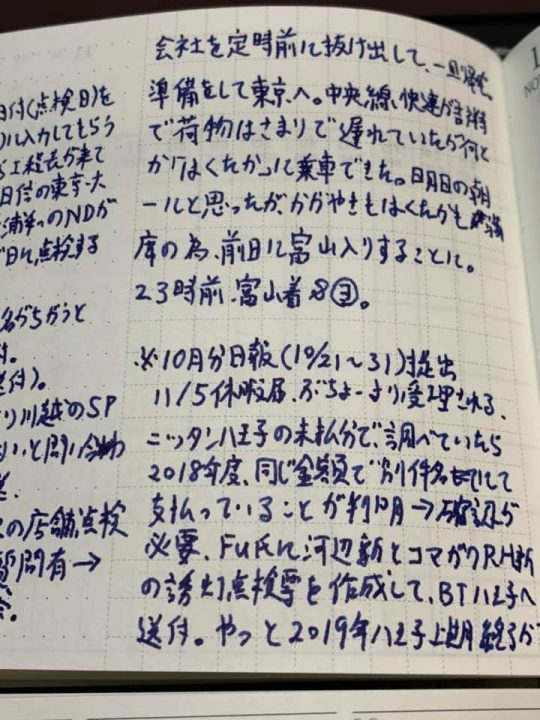 会社を定時前に抜け出して、一旦帰宅。
準備をして東京へ。中央線快速が吉祥寺
で荷物はさまりで遅れていたが何と
か「はくたか」に乗車できた。明日の朝
ールと思ったが、かがやきもはくたかも満
席の為、前日に富山入りすることに。
23時前、富山着
※10月分日報(10/21〜31)提出
11/5休暇届、ぶちょーより受理される。
ニッタン八王子の未払分で調べていたら
2018年度、同じ金額で別件名
支払っていることが判明→確認が
必要、FuFに河辺新とコマガワRH新
の誘灯点検票を作成して、BT八王子へ
送付。やっと2019年八王子上期終了か
日付(点検日)を
入力してもらう
工程表が来て
日信の東京・大
のNDが
日に点検する
名がちがうと
付。
送付)。
川越のSP
いと問い合わ
の店舗点検
質問有→